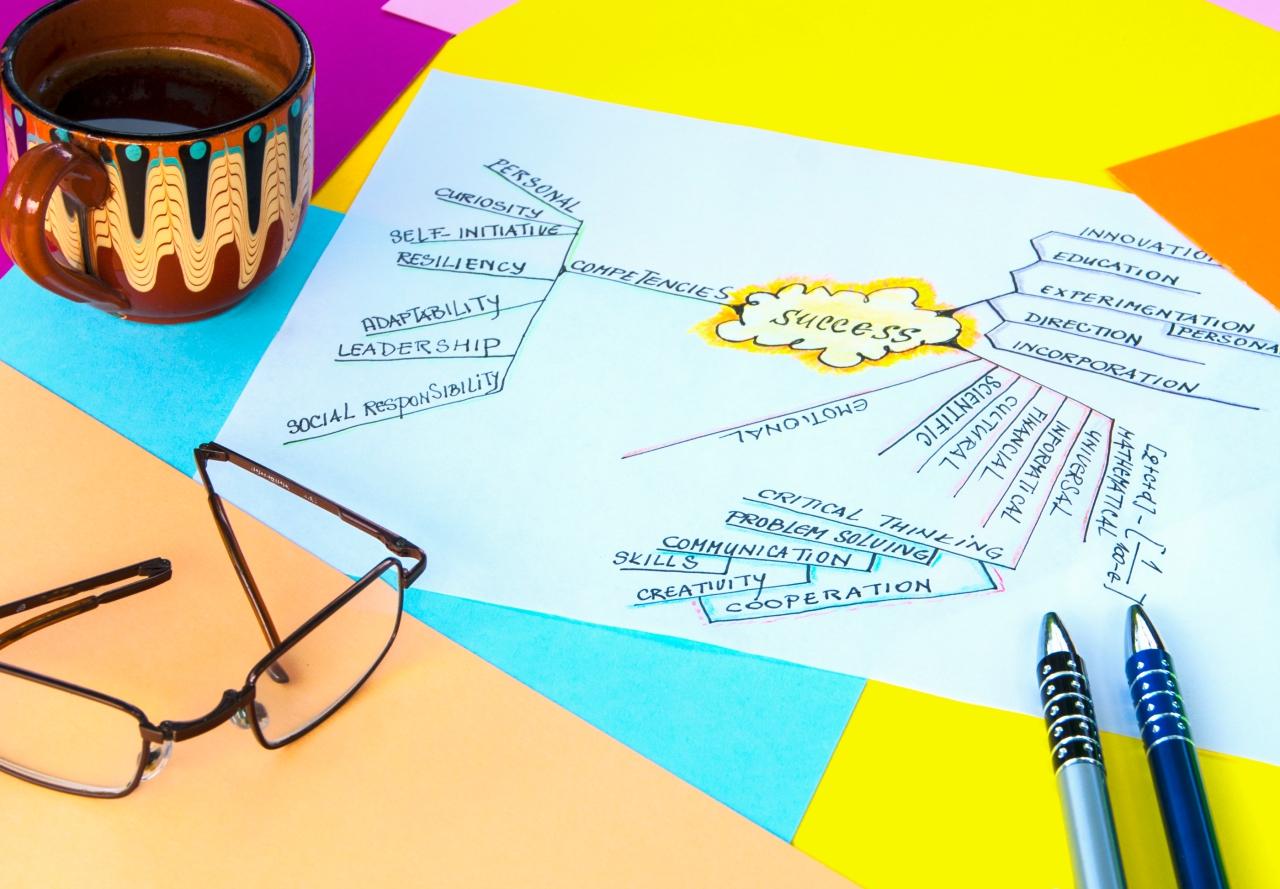 PERSONAL
CURIOSITY
SELF-INITIATIVE
RESILIENCY
ADAPTABILITY
LEADERSHIP
SOCIAL RESPONSIBILITY
COMPETENCIES
SUCCESS
INNOVATION
EDUCATION
EXPERIMENTATION
PERSONA
DIRECTION
INCORPORATION
EMOTIONAL
SCIENTIFIC
CULTURAL
FINANCIAL
INFORMATICAL
UNIVERSAL
MATHEMATICAL
CRITICAL THINKING
PROBLEM SOLVING
COMMUNICATION
SKILLS
CREATIVITY
COOPERATION